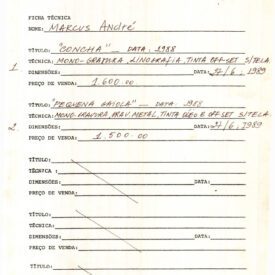 FICHA TÉCNICA
NOME: MARCUS André
TÍTULO: "CONCHA" — DATA: 1988
1. TÉCNICA: MONO-GRAVURA, LINOGRAFIA, TINTA OFF-SET S/TELA
DIMENSÕES: DATA: 27/6/1989
PREÇO DE VENDA: 1.600.00
TÍTULO: "PEQUENA GAIOLA" — DATA: 1988
TÉCNICA: MONO-GRAVURA, GRAV. METAL, TINTA ÓLEO E OFF-SET S/TELA
2. DIMENSÕES: DATA: 27/6/1989
PREÇO DE VENDA: 1.500.00
TÍTULO:
TÉCNICA:
DIMENSÕES: DATA:
PREÇO DE VENDA:
TÍTULO:
TÉCNICA:
DIMENSÕES: DATA:
PREÇO DE VENDA:
TÍTULO: